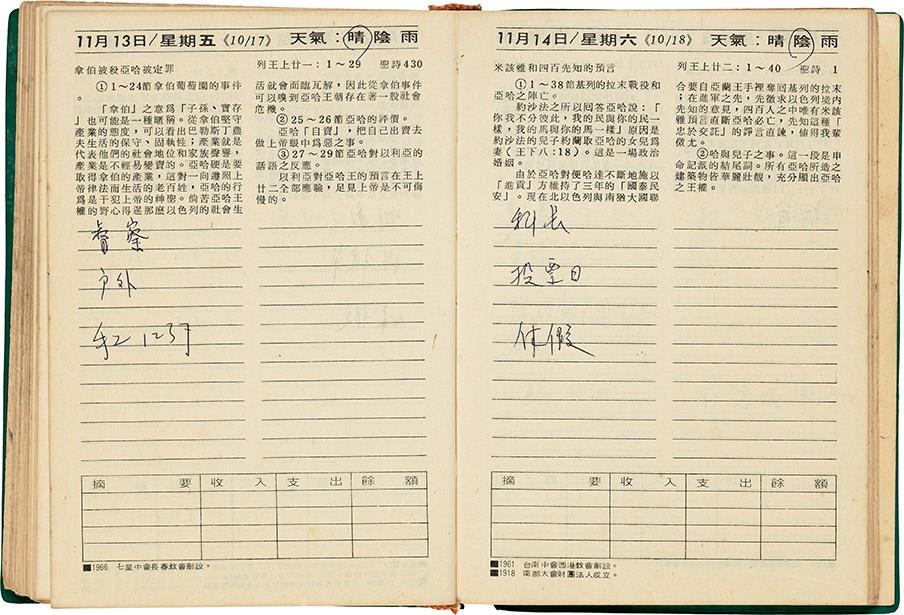 11月13日/星期五《10/17》 天氣：晴 陰 雨
拿伯被殺亞哈被定罪
①1～24節拿伯葡萄園的事件
。
「拿伯」之意爲「子孫、實存
」也可能是一種暱稱。從拿伯堅守
產業的態度，可以看出巴勒斯丁農
夫生活的保守、固執性；產業就是
代表他們的社會地位和家族聲譽，
產業是不輕易變賣的。亞哈硬是要
取得拿伯的產業，這對一向遵照上
帝律法而生活的老百姓，亞哈的行
爲是干犯上帝的神聖。倘若亞哈王
權的野心得逞那麽以色列的社會生
列王上廿一：1～29 聖詩430
活就會面臨瓦解，因此從拿伯事件
可以嗅到亞哈王朝存在著一股社會
危機。
②25～26節亞哈的評價。
亞哈「自賣」，把自己出賣去
做上帝眼中爲惡之事。
③27～29節亞哈對以利亞的
話語之反應。
以利亞對亞哈王的預言在王上
廿二全部應驗，足見上帝是不可侮
慢的。
督察
戶外
摘要 收入 支出 餘額
■1966 七星中會長春教會創設。
11月14日/星期六《10/18》 天氣：晴 陰 雨
米該雅和四百先知的預言
①1～38節基列的拉末戰役和
亞哈之陣亡。
約沙法之所以回答亞哈說：「
你我不分彼此，我的民與你的民一
樣，我的馬與你的馬一樣」原因是
約沙法的兒子約蘭取亞哈的女兒爲
妻（王下八：18）。這是一場政治
婚姻。
由於亞哈對便哈達不斷地施以
「進貢」方維持了三年的「國泰民
安」。現在北以色列與南猶大國聯
列王上廿二：1～40 聖詩 1
合要自亞蘭王手裡奪回基列的拉末
；在進軍之先，先徵求以色列境內
先知的意見，四百人之中唯有米該
雅預言直斷亞哈必亡，先知這種「
忠於妥託」的諍言直諫，値得我輩
傚尤。
②哈與兒子之事。這一段是申
命記派的結尾詞。所有亞哈所造之
建築物皆華麗壯觀，充分顯出亞哈
之王權。
科長
投票日
休假
摘要 收入 支出 餘額
■1961 台南中會西港教會創設。
■1918 南部大會財團法人成立。